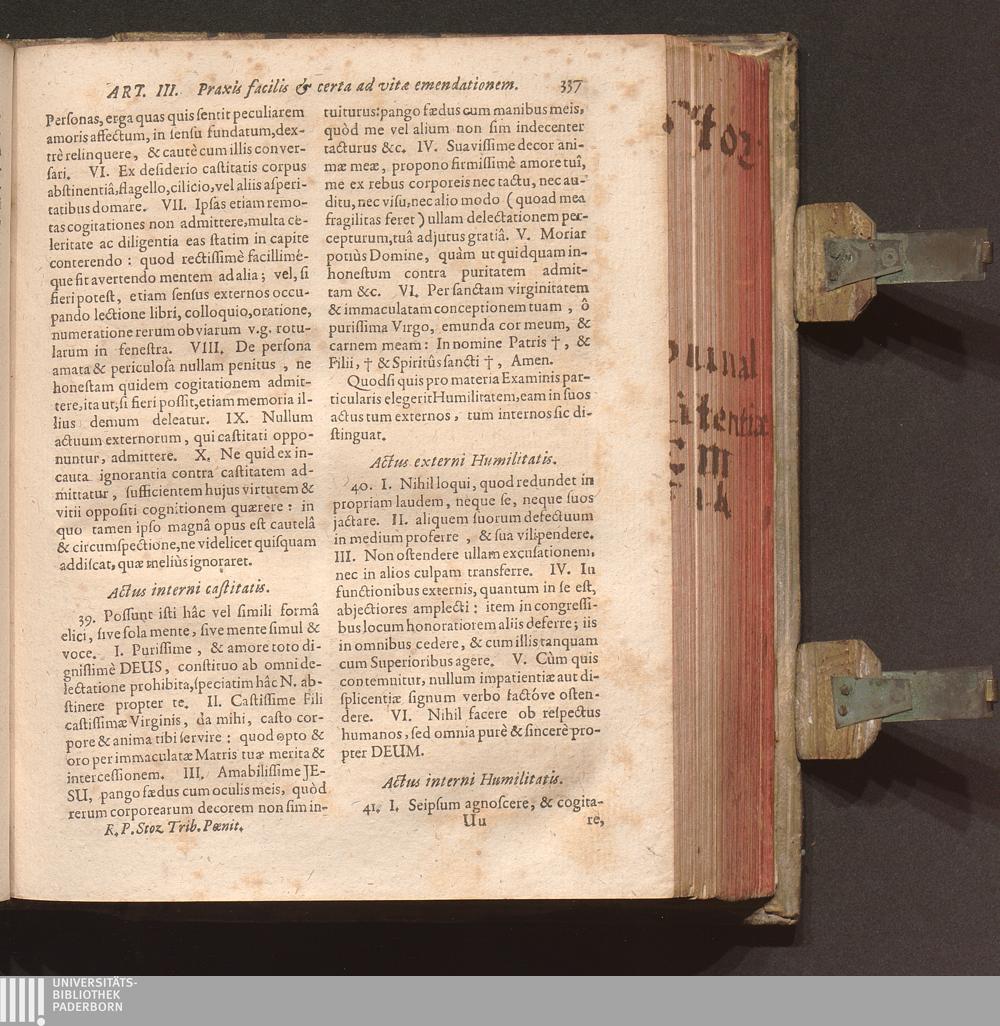 ART. III. Praxis facilis & certa ad vitæ emendationem. 337
Personas, erga quas quis sentit peculiarem
amoris affectum, in sensu fundatum, dex-
trè relinquere, & cautè cum illis conver-
sari. VI. Ex desiderio castitatis corpus
abstinentiâ, flagello, cilicio, vel aliis asperi-
tatibus domare. VII. Ipsas etiam remo-
tas cogitationes non admittere, multa ce-
leritate ac diligentia eas statim in capite
conterendo : quod rectissimè facillimé-
que fit avertendo mentem ad alia ; vel, si
fieri potest, etiam sensus externos occu-
pando lectione libri, colloquio, oratione,
numeratione rerum obviarum v.g. rotu-
larum in fenestra. VIII. De persona
amata & periculosa nullam penitus , ne
honestam quidem cogitationem admit-
tere, ita ut, si fieri possit, etiam memoria il-
lius demum deleatur. IX. Nullum
actuum externorum, qui castitati oppo-
nuntur, admittere. X. Ne quid ex in-
cauta ignorantia contra castitatem ad-
mittatur, sufficientem hujus virtutem &
vitii oppositi cognitionem quærere : in
quo tamen ipso magnâ opus est cautelâ
& circumspectione, ne videlicet quisquam
addiscat, quæ meliùs ignoraret.
Actus interni castitatis.
39. Possunt isti hâc vel simili formâ
elici, sive sola mente, sive mente simul &
voce. I. Purissime , & amore toto di-
gnissimè DEUS, constituo ab omni de-
lectatione prohibita, speciatim hâc N. ab-
stinere propter te. II. Castissime Fili
castissimæ Virginis, da mihi, casto cor-
pore & anima tibi servire : quod opto &
oro per immaculatæ Matris tuæ merita &
intercessionem. III. Amabilissime JE-
SU, pango fædus cum oculis meis, quòd
rerum corporearum decorem non sim in-
R. P. Stoz Trib. Pœnit.
tuiturus: pango fædus cum manibus meis,
quòd me vel alium non sim indecenter
tacturus &c. IV. Suavissime decor ani-
mæ meæ, propono firmissimè amore tuî,
me ex rebus corporeis nec tactu, nec au-
ditu, nec visu, nec alio modo (quoad mea
fragilitas feret) ullam delectationem per-
cepturum, tuâ adjutus gratiâ. V. Moriar
potiùs Domine, quàm ut quidquam in-
honestum contra puritatem admit-
tam &c. VI. Per sanctam virginitatem
& immaculatam conceptionem tuam , ô
purissima Virgo, emunda cor meum, &
carnem meam : In nomine Patris †, &
Filii, † & Spiritûs sancti †, Amen.
Quodsi quis pro materia Examinis par-
ticularis elegerit Humilitatem, eam in suos
actus tum externos, tum internos sic di-
stinguat.
Actus externi Humilitatis.
40. I. Nihil loqui, quod redundet in
propriam laudem, neque se, neque suos
jactare. II. aliquem suorum defectuum
in medium proferre , & sua vilipendere.
III. Non ostendere ullam excusationem,
nec in alios culpam transferre. IV. In
functionibus externis, quantum in se est,
abjectiores amplecti : item in congressi-
bus locum honoratiorem aliis deferre; iis
in omnibus cedere, & cum illis tanquam
cum Superioribus agere. V. Cùm quis
contemnitur, nullum impatientiæ aut di-
splicentiæ signum verbo factóve osten-
dere. VI. Nihil facere ob respectus
humanos, sed omnia purè & sincerè pro-
pter DEUM.
Actus interni Humilitatis.
41. I. Seipsum agnoscere, & cogita-
Uu re,
Stoz
UNIVERSITÄTS-
BIBLIOTHEK
PADERBORN